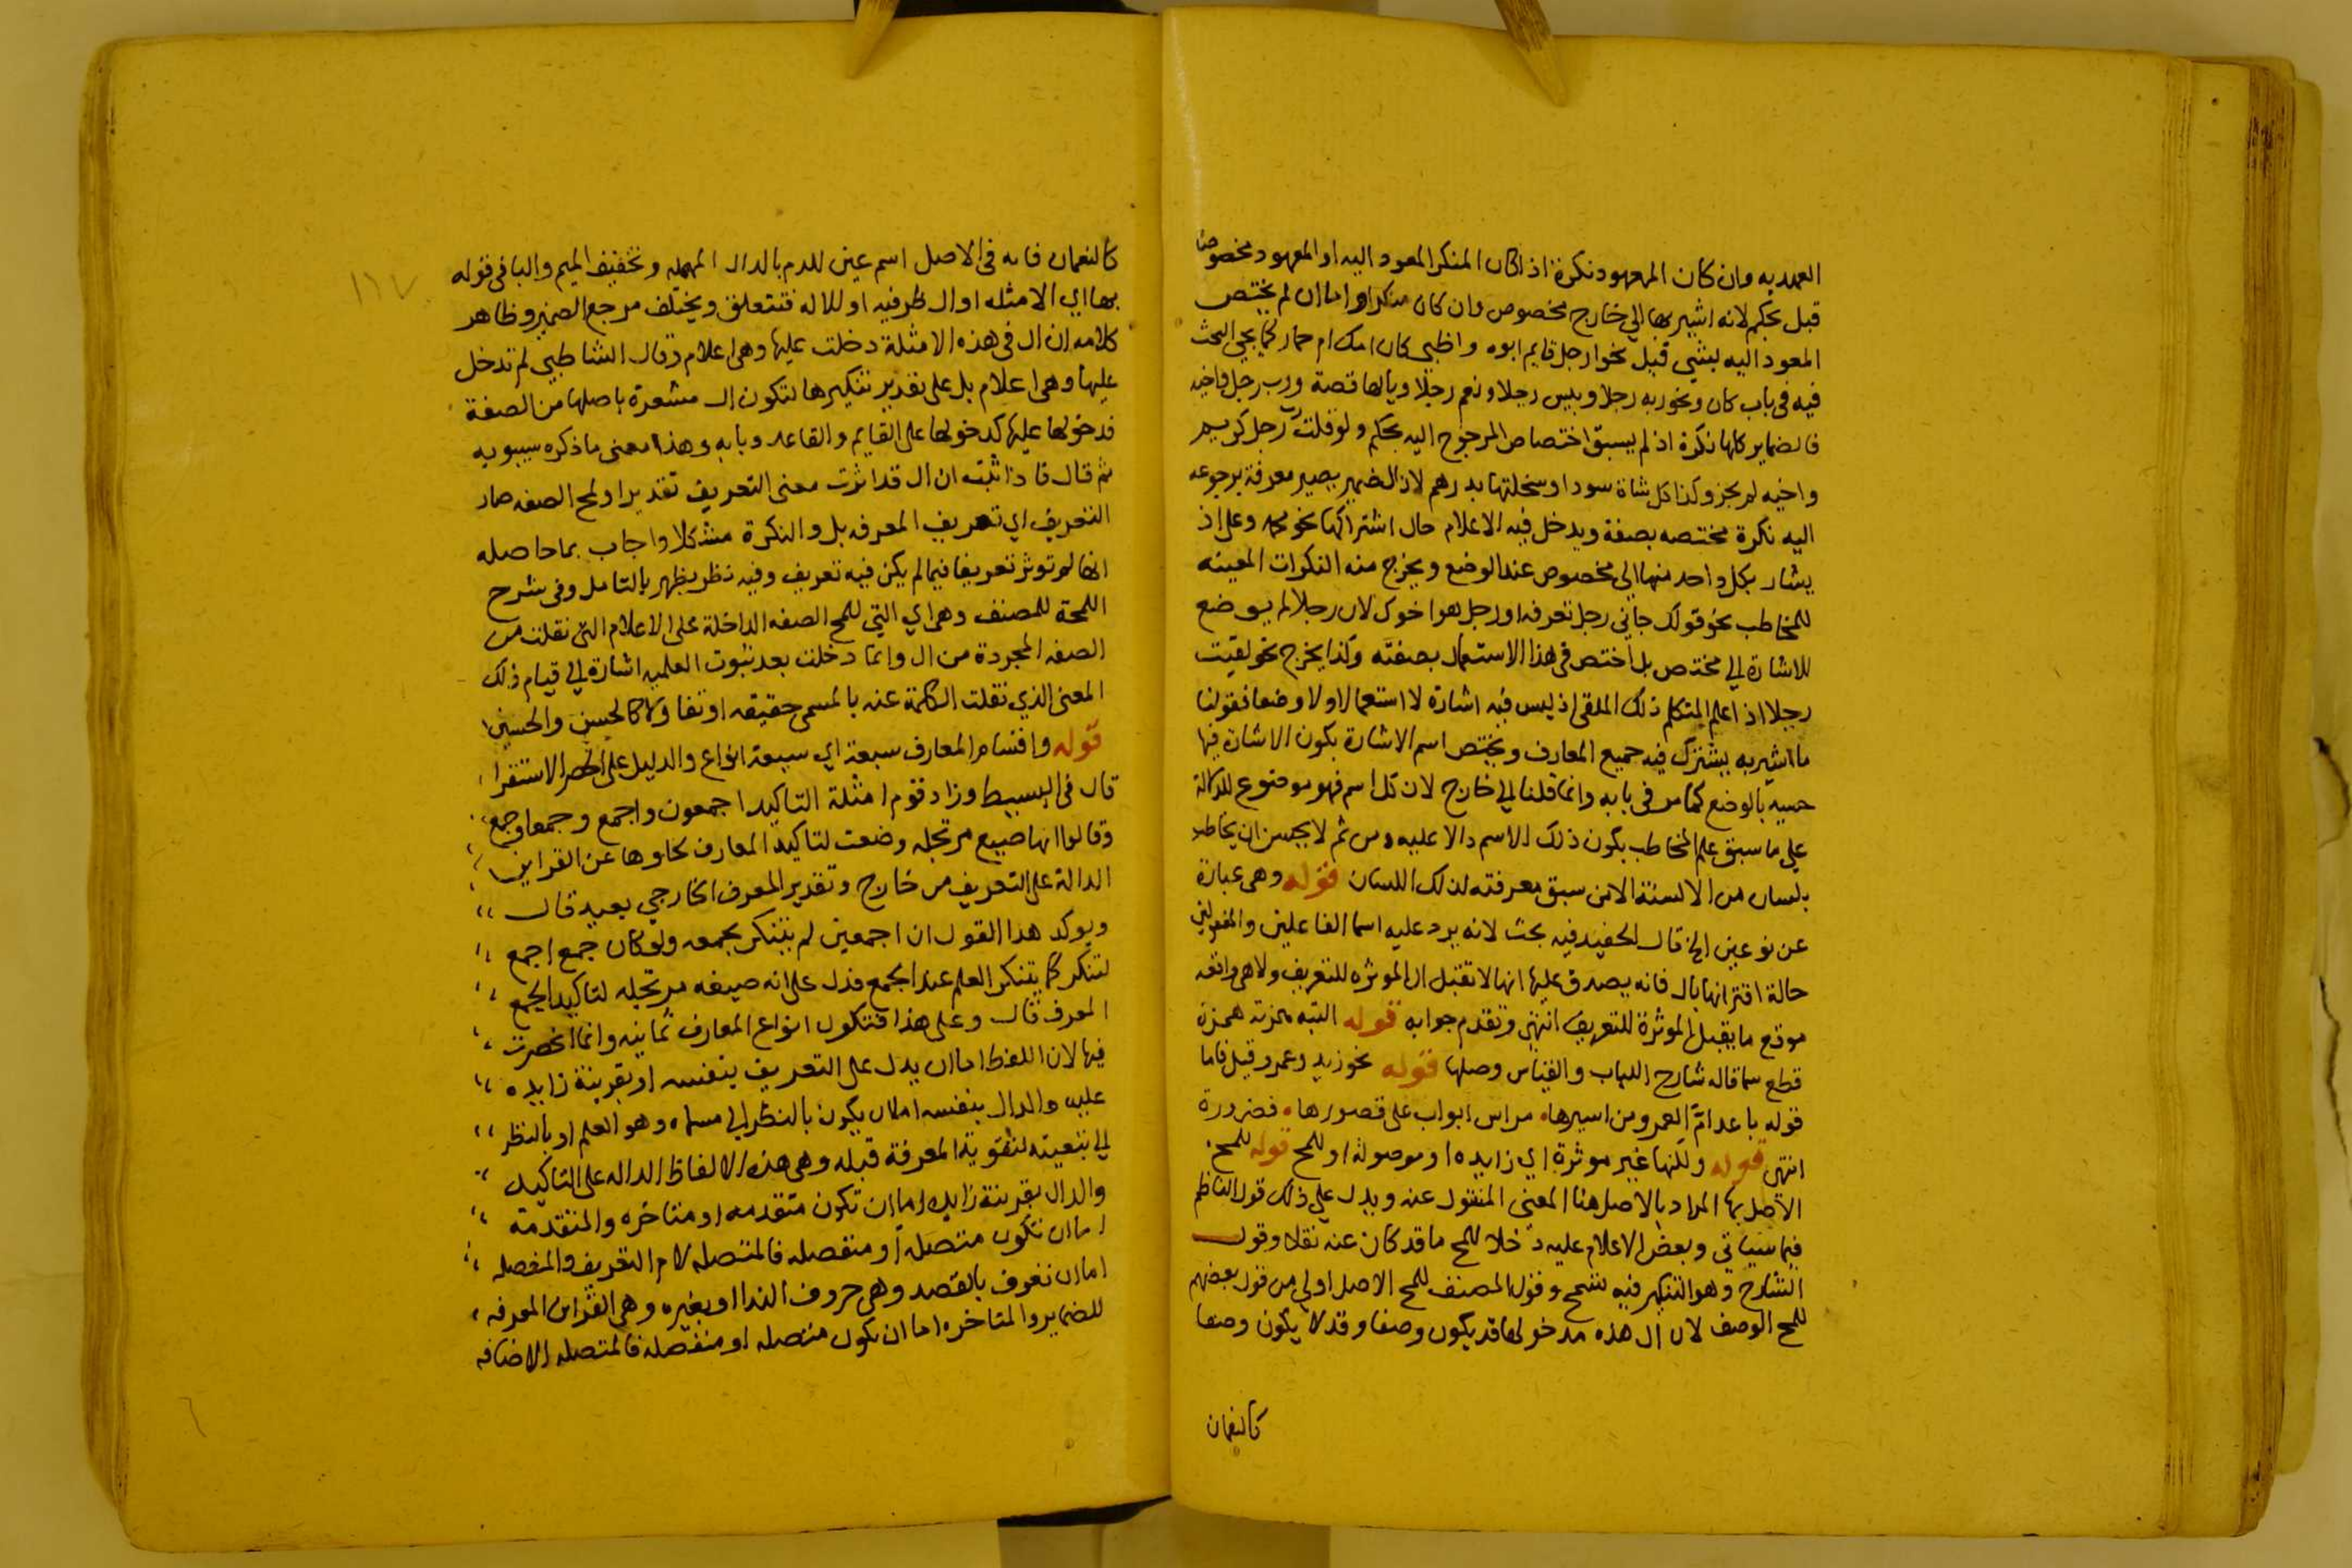 العهديه وان كان المعهود نكرة اذا كان المنكر المعود اليه او المعهود مخصوصا
قبل بحكم لانه اشير بها الي خارج مخصوص وان كان منكرا واما ان لم يختص
المعود اليه بشي قبل نحو ارجل قايم ابوه واظبي كان امك ام حمار كما يجي البحث
فيه في باب كان ونحو ربه رجلا وبيس رجلا ونعم رجلا ويالها قصة ورب رجل واخيه
فالضماير كلها نكرة اذ لم يسبق اختصاص المرجوع اليه بحكم ولو قلت رب رجل كريم
واخيه لم يجز وكذا كل شاة سودا وسخلتها بدرهم لان الضمير يصير معرفة برجوعه
اليه نكرة مختصه بصفة ويدخل فيه الاعلام حال اشتراكها نحو محمد وعلي اذ
يشار بكل واحد منهما الي مخصوص عند الوضع ويخرج منه النكرات المعينه
للمخاطب نحو قولك جاني رجل تعرفه او رجل هو اخوك لان رجلا لم يوضع
للاشارة الي مختص بل اختص في هذا الاستعمال بصفته وكذا يخرج نحو لقيت
رجلا اذا علم المتكلم ذلك الملقي اذ ليس فيه اشارة لا استعمالا ولا وضعا فقولنا
ما اشير به يشترك فيه جميع المعارف ويختص اسم الاشارة بكون الاشارة فيها
حسية بالوضع كما مر في بابه وانما قلنا الي خارج لان كل اسم فهو موضوع للدلالة
علي ما سبق علم المخاطب بكون ذلك الاسم دالا عليه ومن ثم لا يحسن ان يخاطب
بلسان من الالسنة الا من سبق معرفته لذلك اللسان قوله وهي عبارة
عن نوعين الخ قال الحفيد فيه بحث لانه يرد عليه اسما الفاعلين والمفعولين
حالة اقترانها بال فانه يصدق عليها انها لا تقبل ال الموثره للتعريف ولا هي واقعه
موقع ما يقبل الموثرة للتعريف انتهي وتقدم جوابه قوله البتة همزته همزة
قطع سما قاله شارح اللباب والقياس وصلها قوله نحو زيد وعمرو قيل فاما
قوله باعد ام العمرو من اسيرها مراس ابواب علي قصورها فضرورة
انتهي قوله ولكنها غير موثرة اي زايده او موصولة او للمح قوله للمح
الاصل بها المراد بالاصل هنا المعني المنقول عنه ويدل علي ذلك قول الناظم
فيما سياتي وبعض الاعلام عليه دخلا للمح ما قد كان عنه نقلا وقول
الشارح وهو التنكير فيه تسمح وقول المصنف للمح الاصل اولي من قول بعضهم
للمح الوصف لان ال هذه مدخولها قد يكون وصفا وقد لا يكون وصفا
كالنعمان
١١٧
كالنعمان فانه في الاصل اسم عين للدم بالدال المهمله وتخفيف الميم والبا في قوله
بها اي الامثله او ال ظرفيه او للاله فتتعلق ويختلف مرجع الضمير وظاهر
كلامه ان ال في هذه الامثلة دخلت عليها وهي اعلام وقال الشاطبي لم تدخل
عليها وهي اعلام بل علي تقدير تنكيرها لتكون ال مشعرة باصلها من الصفة
فدخولها عليها كدخولها علي القايم والقاعد وبابه وهذا معني ما ذكره سيبويه
ثم قال فاذا ثبت ان ال قد اثرت معني التعريف تقديرا ولمح الصفه صار
التعريف اي تعريف المعرفه بل والنكرة مشكلا واجاب بما حاصله
انها لم توثر تعريفا فيما لم يكن فيه تعريف وفيه نظر يظهر بالتامل وفي شرح
اللمحة للمصنف وهي اي التي للمح الصفه الداخلة علي الاعلام التي نقلت من
الصفه المجردة من ال وانما دخلت بعد ثبوت العلميه اشارة الي قيام ذلك
المعني الذي نقلت الكلمة عنه بالمسمي حقيقه او تفاولا كالحسن والحسين
قوله واقسام المعارف سبعة اي سبعة انواع والدليل علي الحصر الاستقرا
قال في البسيط وزاد قوم امثلة التاكيد اجمعون واجمع وجمعا وجمع
وقالوا انها صيغ مرتجله وضعت لتاكيد المعارف لخلوها عن القراين
الدالة علي التعريف من خارج وتقدير المعرف الخارجي بعيد قال
ويوكد هذا القول ان اجمعين لم يتنكر بجمعه ولو كان جمع اجمع
لتنكر كما يتنكر العلم عند الجمع فدل علي انه صيغه مرتجله لتاكيد الجمع
المعرف قال وعلي هذا فتكون انواع المعارف ثمانيه وانما انحصرت
فيها لان اللفظ اما ان يدل علي التعريف بنفسه او بقرينة زايده
عليه والدال بنفسه اما ان يكون بالنظر الي مسماه وهو العلم او بالنظر
الي تبعيته لتقوية المعرفة قبله وهي هذه الالفاظ الداله علي التاكيد
والدال بقرينة زايده اما ان تكون متقدمه او متاخره والمتقدمة
اما ان تكون متصلة او منفصله فالمتصله لام التعريف والمنفصله
اما ان تعرف بالقصد وهي حروف الندا او بغيره وهي القراين المعرفه
للضماير والمتاخره اما ان تكون متصله او منفصله فالمتصله الاضافه